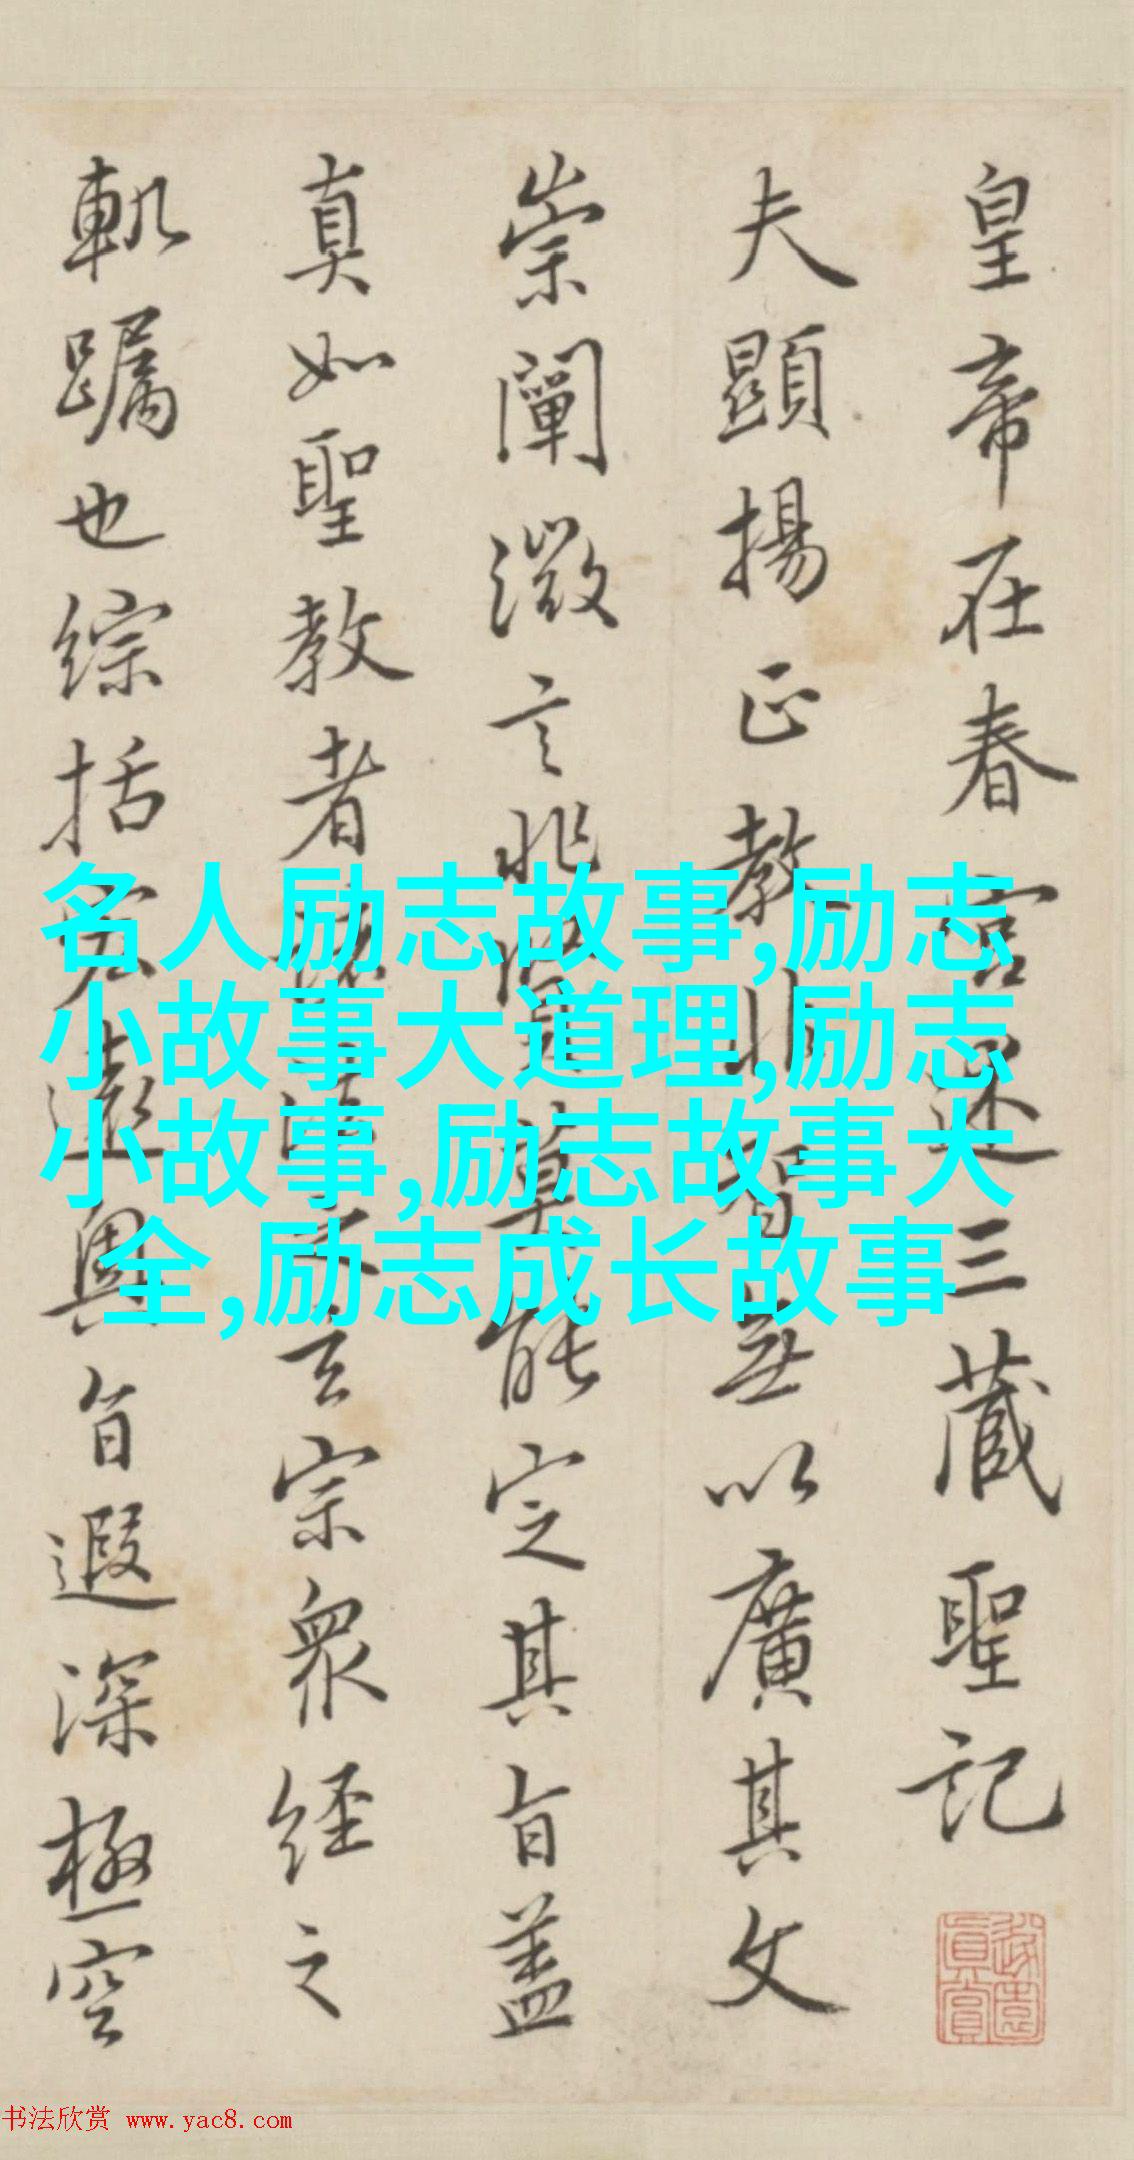 皇帝在春宮述三藏聖記
夫顯揚正教非智無以廣其文
崇闡微言非賢莫能定其旨蓋
真如聖教者諸法之玄宗眾經之
軌躅也綜括宏遠奧旨遐深極空
名人励志故事,励志
小故事大道理,励志
小故事,励志故事大
全,励志成长故事
书法欣赏 www.yac8.com